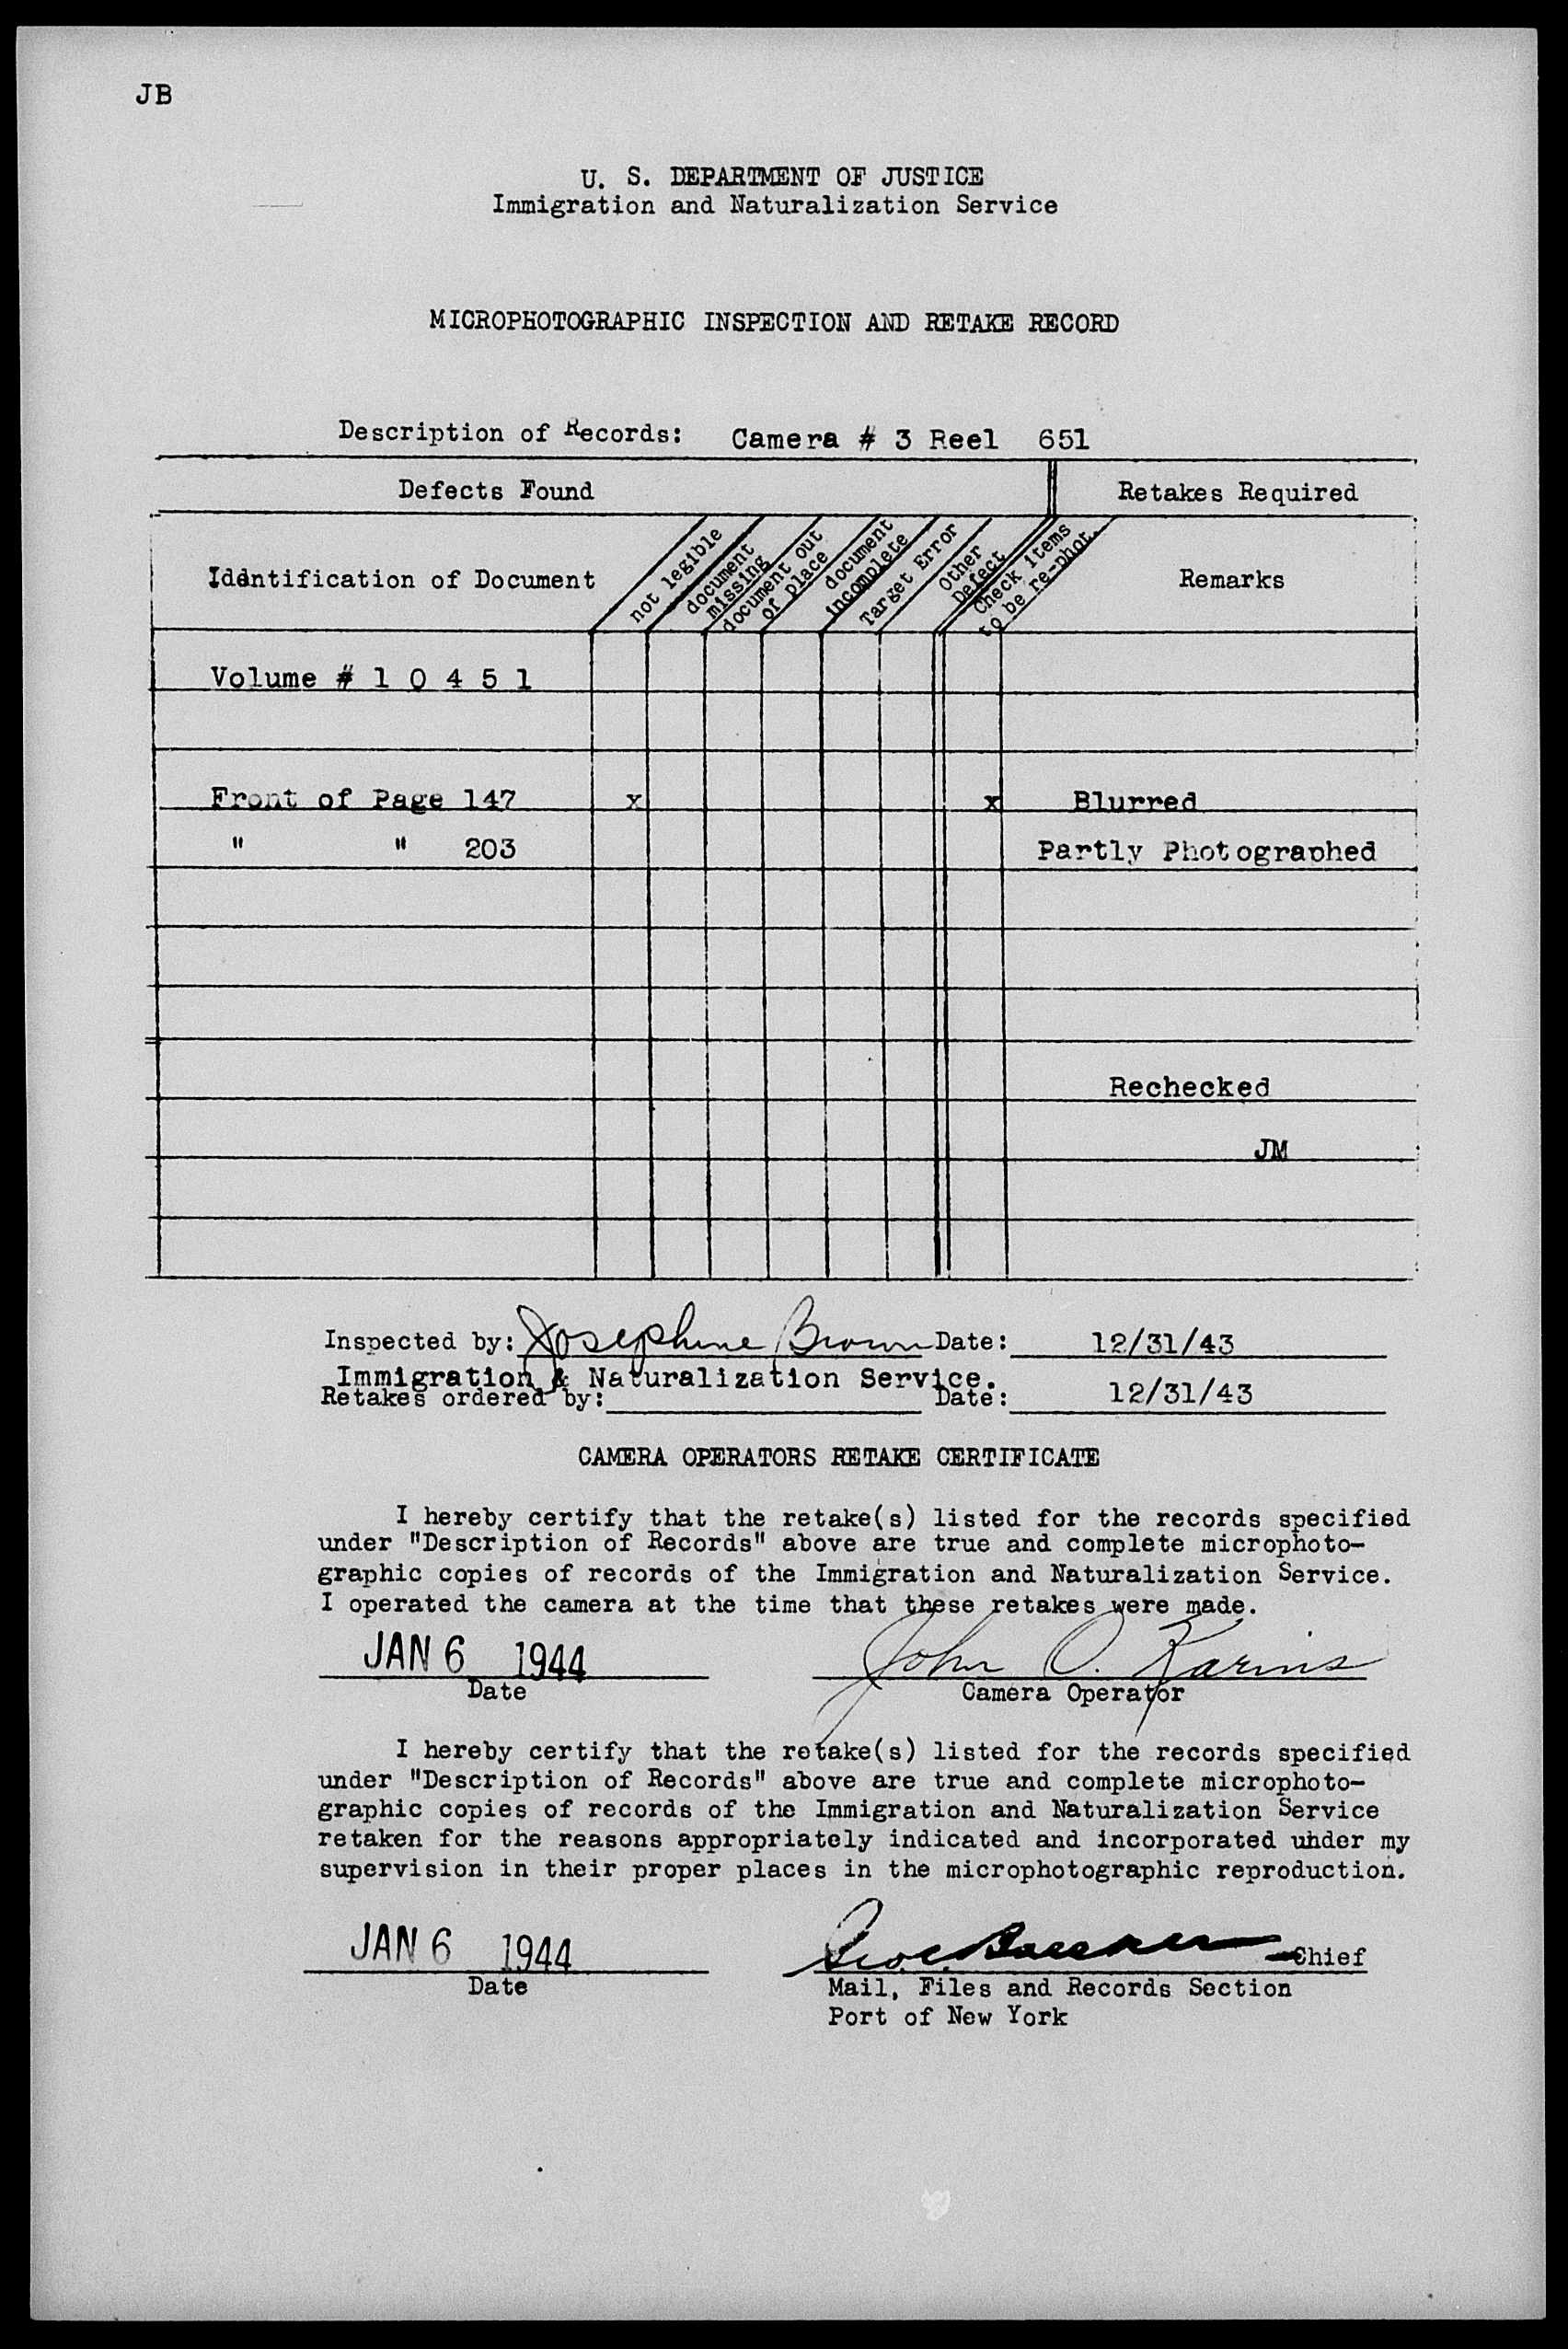 JB
U. S. DEPARTMENT OF JUSTICE
Immigration and Naturalization Service
MICROPHOTOGRAPHIC INSPECTION AND RETAKE RECORD
Description of Records: Camera # 3 Reel 651
Defects Found Retakes Required
Idèntification of Document
not legible
document missing
document out of place
document incomplete
Target Error
Other Defect
Check items to be re-phot.
Remarks
Volume # 1 0 4 5 1
Front of Page 147 x x Blurred
" " 203 Partly Photographed
Rechecked
JM
Inspected by: Josephine Brown Date: 12/31/43
Immigration & Naturalization Service.
Retakes ordered by: Date: 12/31/43
CAMERA OPERATORS RETAKE CERTIFICATE
I hereby certify that the retake(s) listed for the records specified
under "Description of Records" above are true and complete microphoto-
graphic copies of records of the Immigration and Naturalization Service.
I operated the camera at the time that these retakes were made.
JAN 6 1944 John O. Karins
Date Camera Operator
I hereby certify that the retake(s) listed for the records specified
under "Description of Records" above are true and complete microphoto-
graphic copies of records of the Immigration and Naturalization Service
retaken for the reasons appropriately indicated and incorporated under my
supervision in their proper places in the microphotographic reproduction.
JAN 6 1944 Chief
Date Mail, Files and Records Section
Port of New York